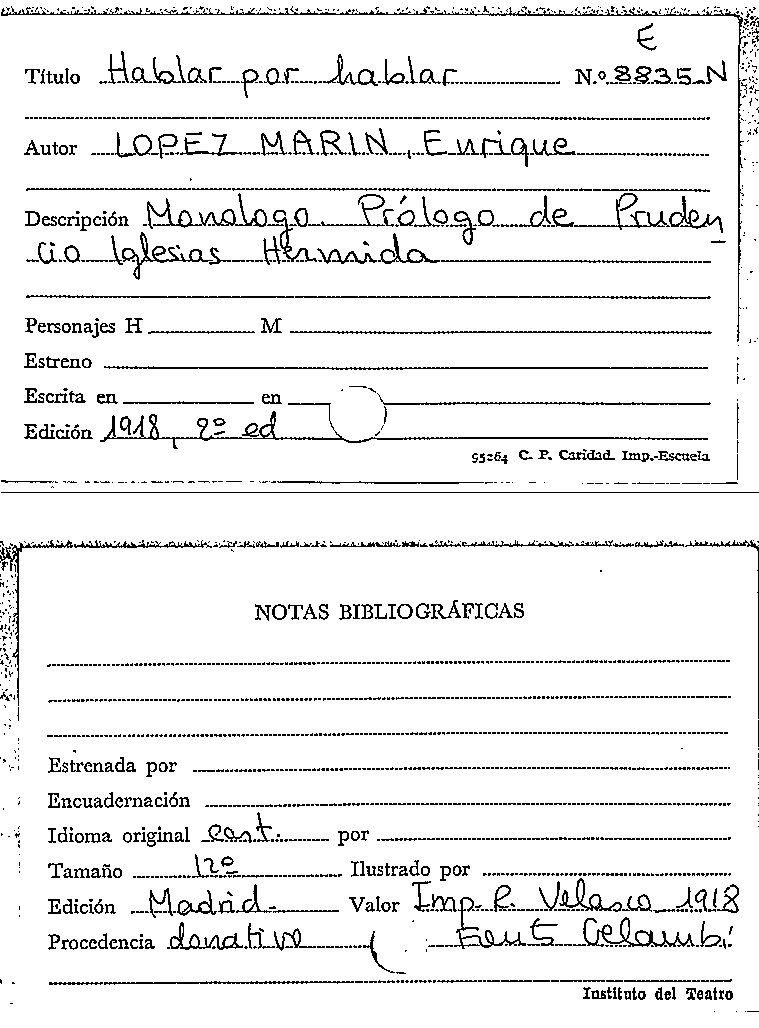 E
Título Hablar por hablar N.º 8835-N
Autor LOPEZ MARIN, Enrique
Descripción Monologo. Prólogo de Pruden
cio Iglesias Hermida
Personajes H M
Estreno
Escrita en en
Edición 1918, 2º ed
95264 C. P. Caridad. Imp.-Escuela
NOTAS BIBLIOGRÁFICAS
Estrenada por
Encuadernación
Idioma original cast. por
Tamaño 12º Ilustrado por
Edición Madrid- Valor Imp. R. Velasco 1918
Procedencia donatiu
Instituto del Teatro